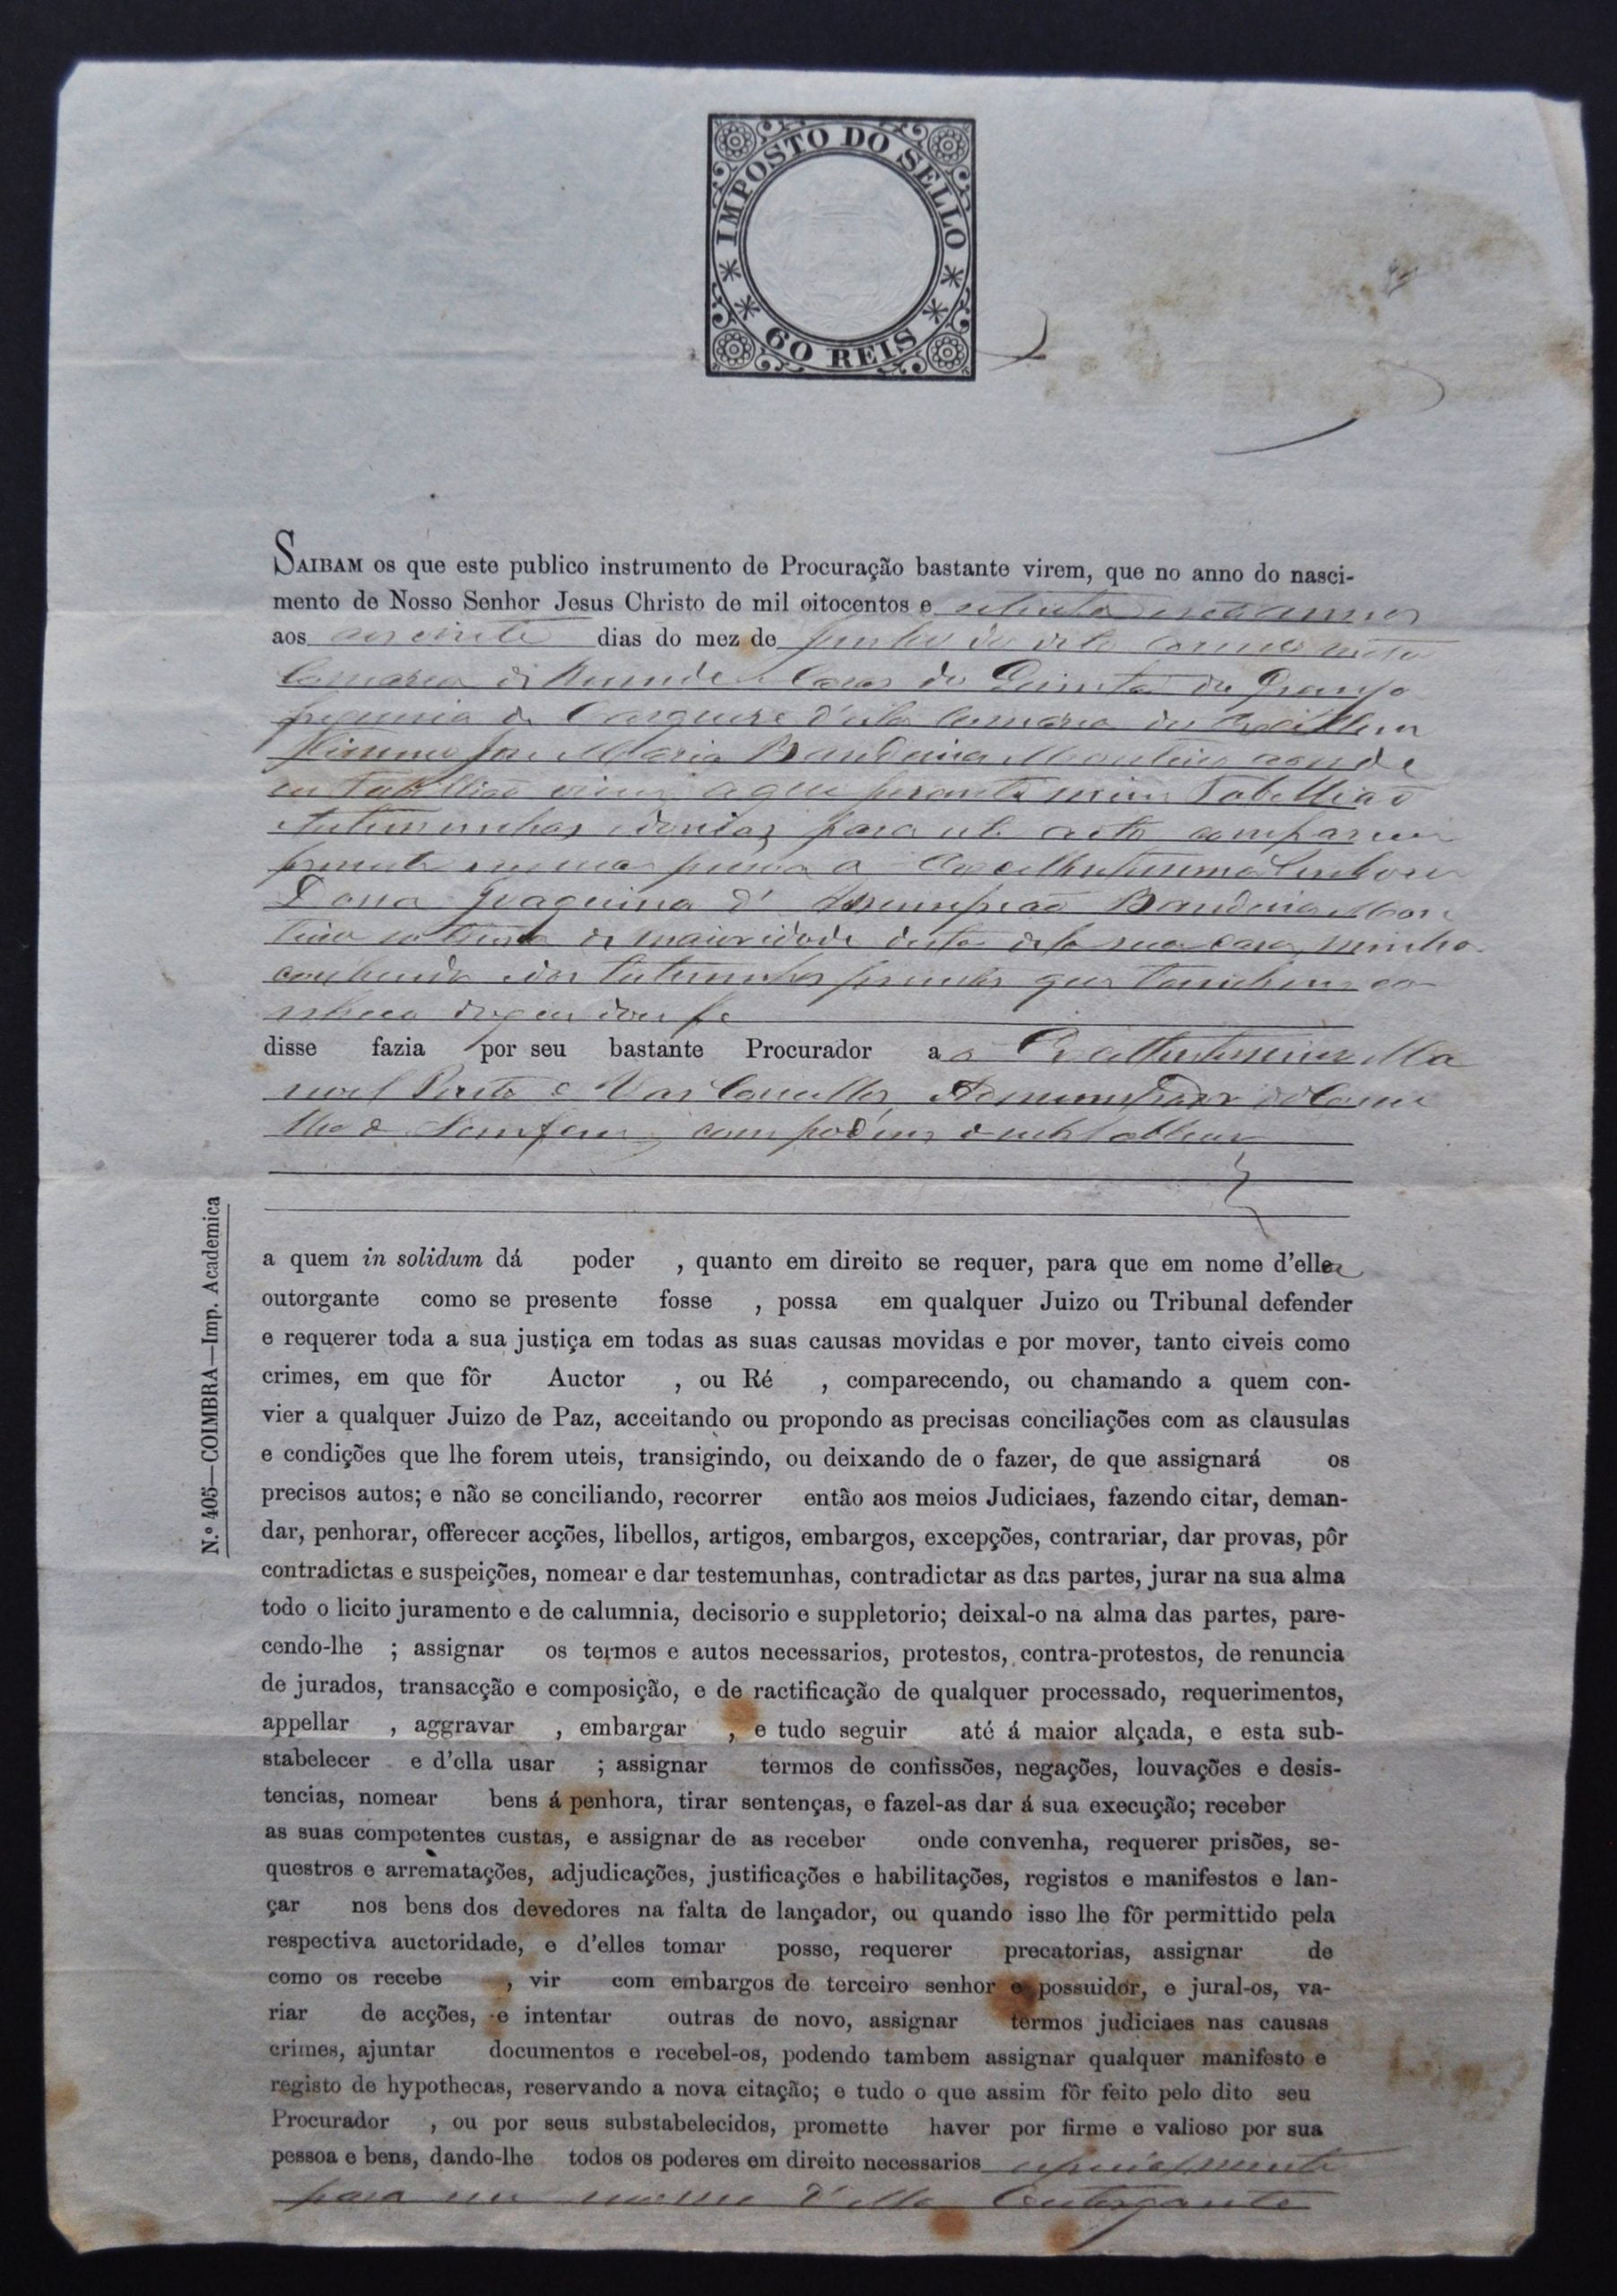 IMPOSTO DO SELLO
60 REIS
SAIBAM os que este publico instrumento de Procuração bastante virem, que no anno do nasci-
mento de Nosso Senhor Jesus Christo de mil oitocentos e
aos dias do mez de Junho
comarca de Casas da Quinta da Granja
de Carquere d'esta comarca do
Maria Bandeira Monteiro aonde
eu Tabellião vim aqui perante mim Tabellião
testemunhas idonias para este acto
a Excellentissima Senhora
Dona Joaquina d'Assumpção Bandeira Mon
teiro solteira de maioridade desta sua casa minha
conhecida e das testemunhas que tambem co
nheço do que dou fe
disse fazia por seu bastante Procurador a o Excellentissimo Ma
noel Pinto Administrador do Conce
lho de com poderes
a quem in solidum dá poder , quanto em direito se requer, para que em nome d'ella
outorgante como se presente fosse , possa em qualquer Juizo ou Tribunal defender
e requerer toda a sua justiça em todas as suas causas movidas e por mover, tanto civeis como
crimes, em que fôr Auctor , ou Ré , comparecendo, ou chamando a quem con-
vier a qualquer Juizo de Paz, acceitando ou propondo as precisas conciliações com as clausulas
e condições que lhe forem uteis, transigindo, ou deixando de o fazer, de que assignará os
precisos autos; e não se conciliando, recorrer então aos meios Judiciaes, fazendo citar, deman-
dar, penhorar, offerecer acções, libellos, artigos, embargos, excepções, contrariar, dar provas, pôr
contradictas e suspeições, nomear e dar testemunhas, contradictar as das partes, jurar na sua alma
todo o licito juramento e de calumnia, decisorio e suppletorio; deixal-o na alma das partes, pare-
cendo-lhe ; assignar os termos e autos necessarios, protestos, contra-protestos, de renuncia
de jurados, transacção e composição, e de ractificação de qualquer processado, requerimentos,
appellar , aggravar , embargar , e tudo seguir até á maior alçada, e esta sub-
stabelecer e d'ella usar ; assignar termos de confissões, negações, louvações e desis-
tencias, nomear bens á penhora, tirar sentenças, e fazel-as dar á sua execução; receber
as suas competentes custas, e assignar de as receber onde convenha, requerer prisões, se-
questros e arrematações, adjudicações, justificações e habilitações, registos e manifestos e lan-
çar nos bens dos devedores na falta de lançador, ou quando isso lhe fôr permittido pela
respectiva auctoridade, e d'elles tomar posse, requerer precatorias, assignar de
como os recebe , vir com embargos de terceiro senhor e possuidor, e jural-os, va-
riar de acções, e intentar outras de novo, assignar termos judiciaes nas causas
crimes, ajuntar documentos e recebel-os, podendo tambem assignar qualquer manifesto e
registo de hypothecas, reservando a nova citação; e tudo o que assim fôr feito pelo dito seu
Procurador , ou por seus substabelecidos, promette haver por firme e valioso por sua
pessoa e bens, dando-lhe todos os poderes em direito necessarios especialmente
para em nome d'ella Outorgante
N.º 405—COIMBRA—Imp. Academica